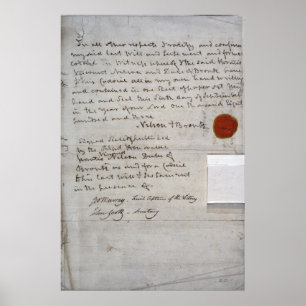 In all other respects I ratify and confirm
my said last Will and Testament and former
Codicil In Witness whereof I the said Horatio
Viscount Nelson and Duke of Bronte have
this Codicil all in my own hand writing
and contained in one Sheet of paper set my
hand and Seal this sixth day of September
in the year of our Lord one thousand Eight
hundred and three
Nelson & Bronte
Signed Sealed & publish'd
by the Right Honorable
Viscount Nelson Duke of
Bronte as and for a Codicil
to his last Will & Testament
in the presence of
Murray First Captain of the Victory
John Scott Secretary